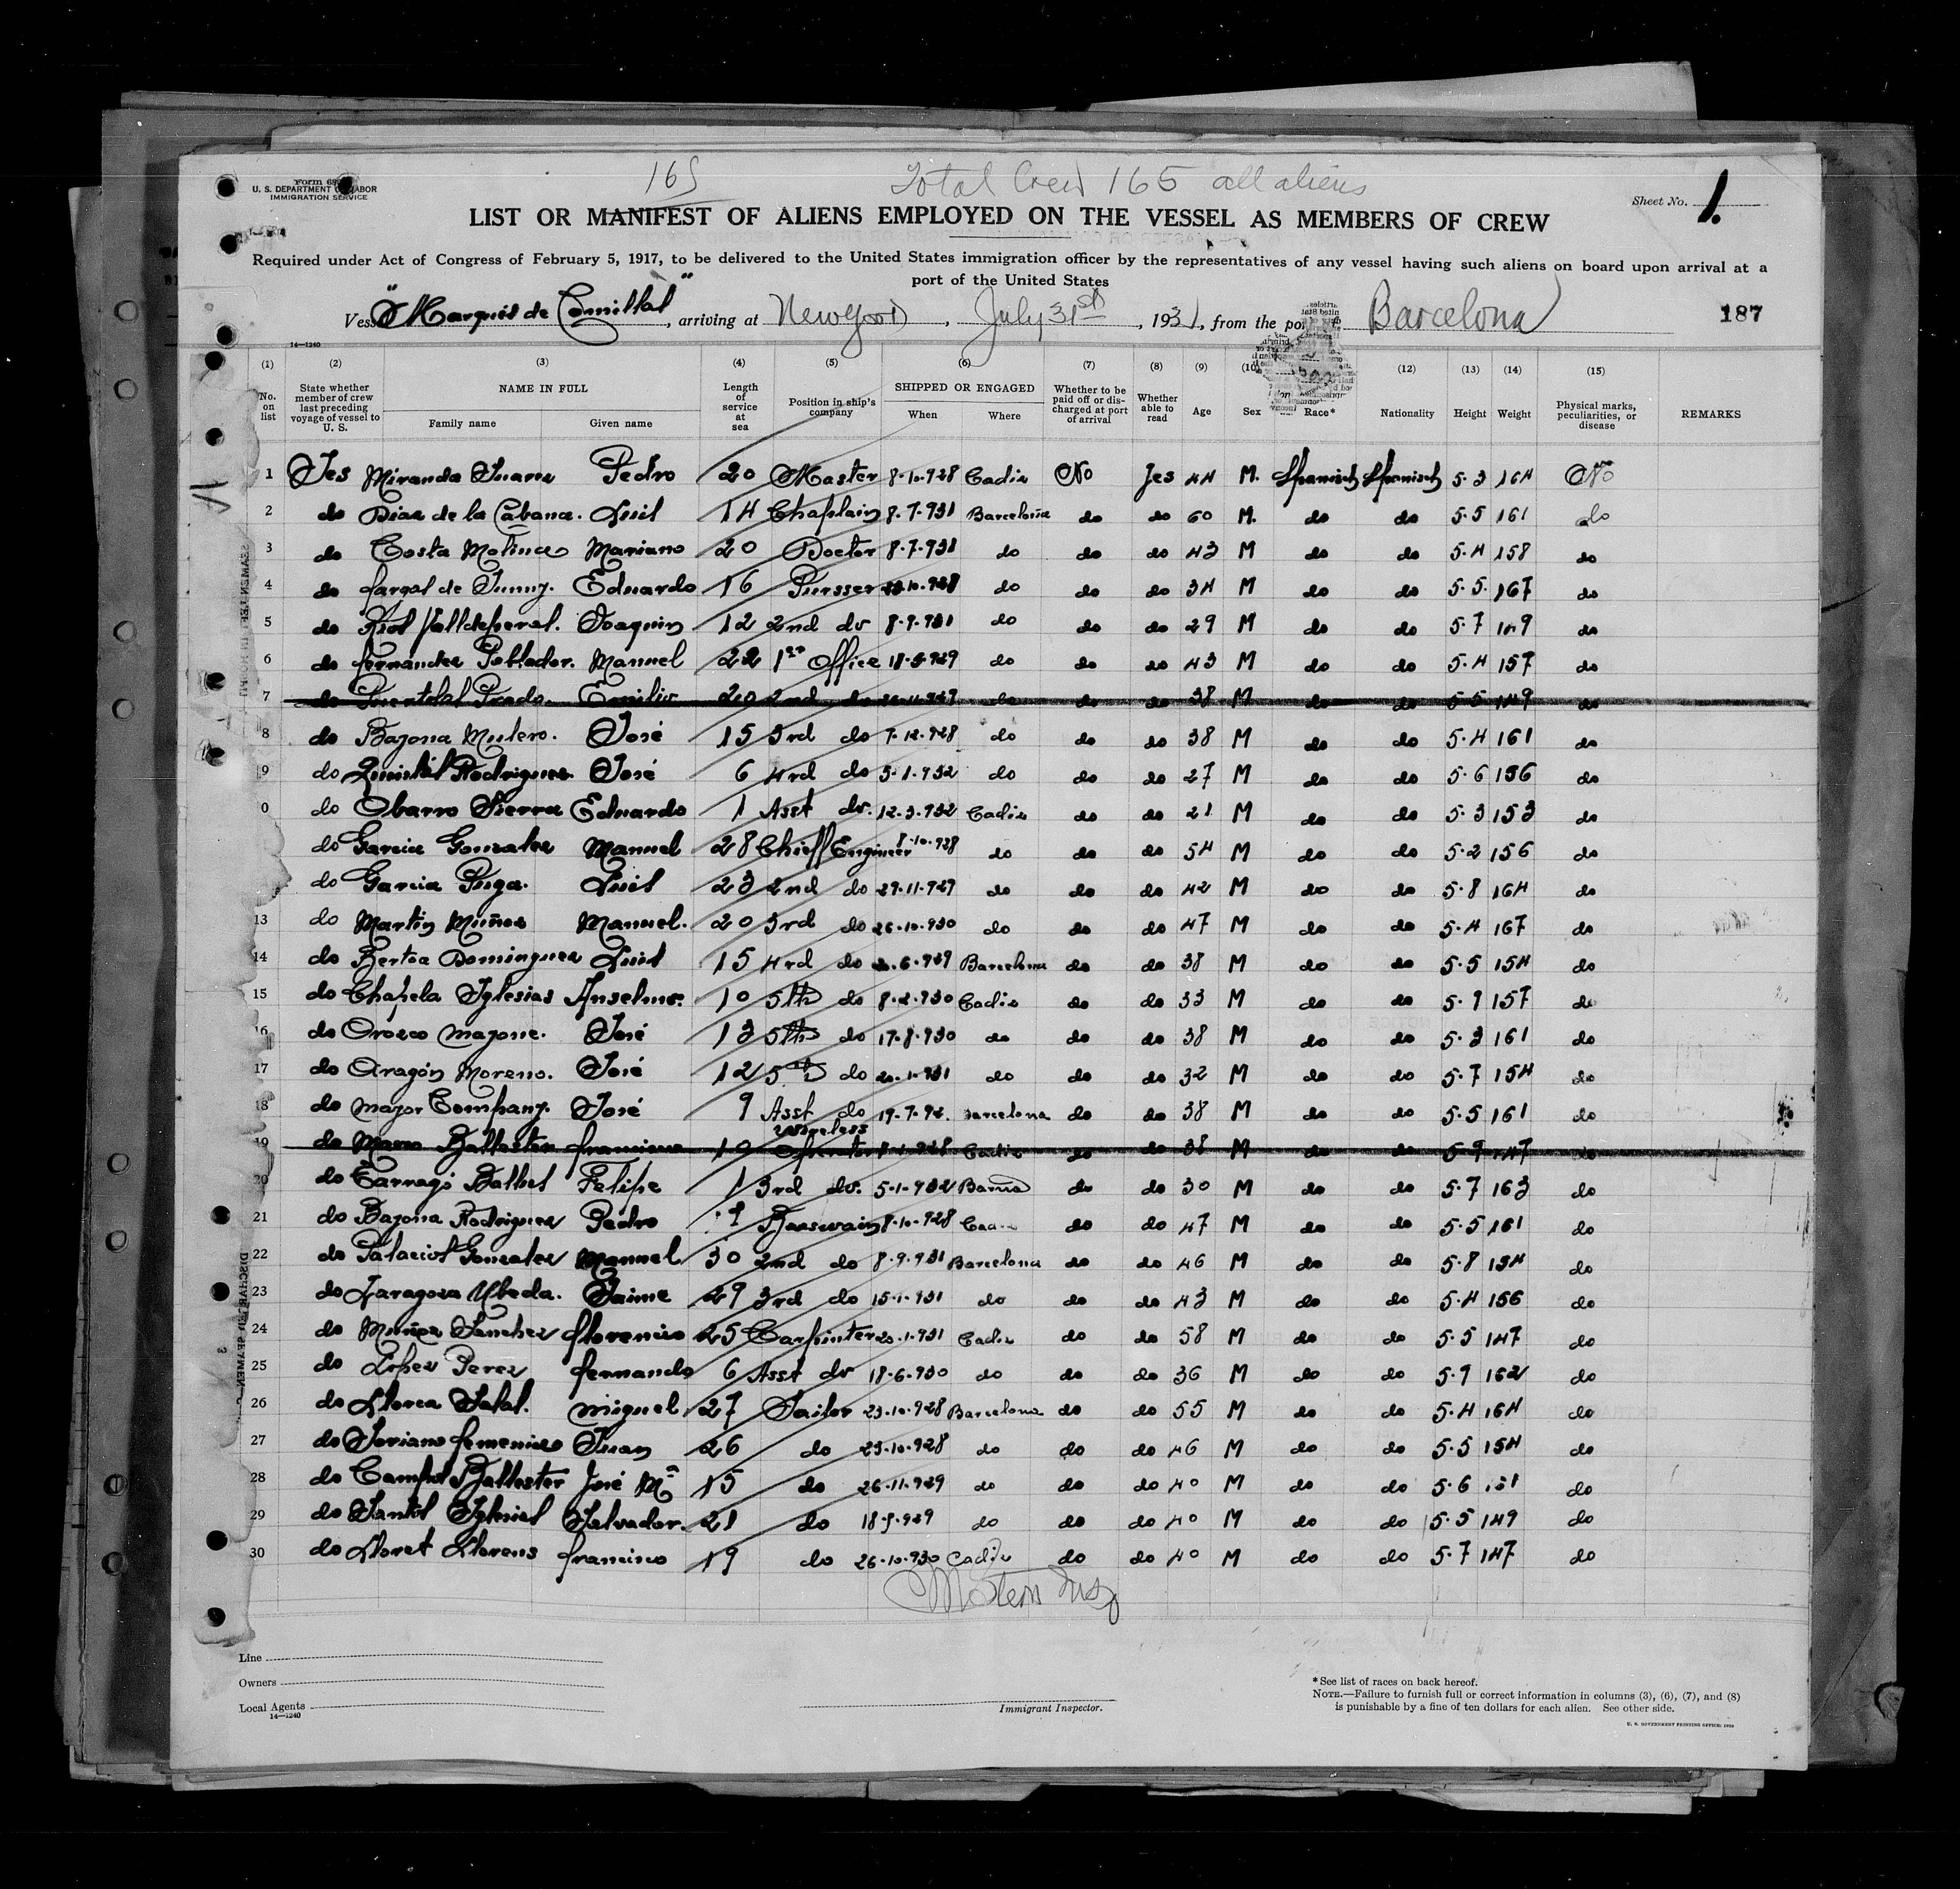 165
Total Crew 165 all aliens
U. S. DEPARTMENT OF LABOR
IMMIGRATION SERVICE
Sheet No. 1.
LIST OR MANIFEST OF ALIENS EMPLOYED ON THE VESSEL AS MEMBERS OF CREW
Required under Act of Congress of February 5, 1917, to be delivered to the United States immigration officer by the representatives of any vessel having such aliens on board upon arrival at a
port of the United States
Vessel "Marqués de Comillas", arriving at New York, July 31st, 193, from the port of Barcelona
187
14—1240
(1) (2) (3) (4) (5) (6) (7) (8) (9) (10) (12) (13) (14) (15)
No. on list State whether member of crew last preceding voyage of vessel to U. S. NAME IN FULL Family name Given name Length of service at sea Position in ship's company SHIPPED OR ENGAGED When Where Whether to be paid off or discharged at port of arrival Whether able to read Age Sex Race* Nationality Height Weight Physical marks, peculiarities, or disease REMARKS
1 Yes Miranda Suarez Pedro 20 Master 8-10-928 Cadiz No Yes 44 M. Spanisch Spanisch 5-3 164 No
2 do Diaz de la Cabana. Luis 14 Chaplain 8-7-931 Barcelona do do 60 M. do do 5-5 161 do
3 do Costa Mariano 20 Doctor 8-7-931 do do do 43 M do do 5-4 158 do
4 do Eduardo 16 Pursser do do do 34 M do do 5-5 167 do
5 do Joaquin 12 2nd do 8-9-931 do do do 29 M do do 5-7 do
6 do fernandez Poblador. Manuel 22 1er Office do do do 43 M do do 5-4 157 do
7 do Prado. Emilio 20 2nd do do do do 38 M do do 5-5 149 do
8 do Bazona Mulero. José 15 3rd do 7-12-928 do do do 38 M do do 5-4 161 do
9 do Rodriguez José 6 4rd do 5-1-932 do do do 27 M do do 5-6 156 do
0 do Obarro Sierra Eduardo 1 Asst do. 12-3-932 Cadiz do do 21 M do do 5-3 153 do
do Garcia Gonzalez Manuel 28 Chieff Engineer do do do 54 M do do 5-2 156 do
do Garcia Puga. Luis 23 2nd do 29-11-929 do do do 42 M do do 5-8 164 do
13 do Martin Muñoz Manuel. 20 3rd do 26-10-930 do do do 47 M do do 5-4 167 do
14 do Dominguez Luis 15 4rd do Barcelona do do 38 M do do 5-5 154 do
15 do Chapela Iglesias Anselmo. 10 5th do 8-2-930 Cadiz do do 33 M do do 5-9 157 do
16 do Orozco José 13 5th do 17-8-930 do do do 38 M do do 5-3 161 do
17 do Aragón Moreno. José 12 5th do do do do 32 M do do 5-7 154 do
18 do Mayor Company. José 9 Asst do Barcelona do do 38 M do do 5-5 161 do
19 do Ballester francisco 10 wireless Operator Cadiz do do 38 M do do 5-9 147 do
20 do Tarragó Felipe 1 3rd do. 5-1-932 Barna do do 30 M do do 5-7 163 do
21 do Bazona Rodriguez Pedro 8-10-928 do do 47 M do do 5-5 161 do
22 do Palacios Gonzalez Manuel 30 2nd do 8-9-931 Barcelona do do 46 M do do 5-8 154 do
23 do Zaragoza Ubeda. Jaime 29 3rd do 15-1-931 do do do 43 M do do 5-4 156 do
24 do Muñoz Sanchez florencio 25 Carpinter Cadiz do do 58 M do do 5-5 147 do
25 do Lopez Perez fernando 6 Asst do 18-6-930 do do do 36 M do do 5-9 162 do
26 do Llorca Miguel 27 Sailor 23-10-928 Barcelona do do 55 M do do 5-4 164 do
27 do Soriano Juan 26 do 23-10-928 do do do 46 M do do 5-5 154 do
28 do Ballester José Mª 15 do 26-11-929 do do do 40 M do do 5-6 do
29 do Santos Iglesias Salvador. 21 do do do do 40 M do do 5-5 149 do
30 do Lloret Llorens francisco 19 do 26-10-930 Cadiz do do 40 M do do 5-7 147 do
Line
Owners
Local Agents
14—1240
Immigrant Inspector.
*See list of races on back hereof.
NOTE.—Failure to furnish full or correct information in columns (3), (6), (7), and (8)
is punishable by a fine of ten dollars for each alien. See other side.
U. S. GOVERNMENT PRINTING OFFICE: 1930